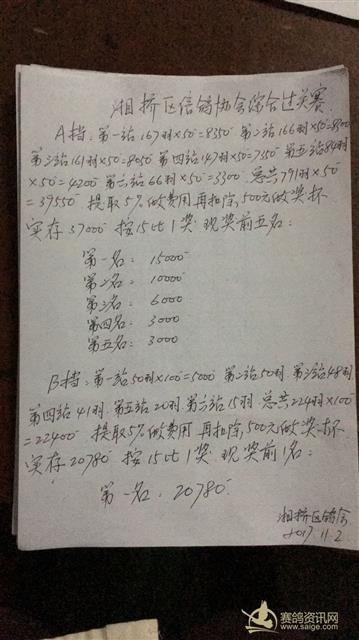 湘桥区信鸽协会综合过关赛
A挡: 第一站167羽×50=8350 第二站166羽×50=8300
第三站161羽×50=8050 第四站147羽×50=7350 第五站84羽
×50=4200 第六站66羽×50=3300 总共791羽×50
=39550 提取5%做费用 再扣除,500元做奖杯
实存37000 按15比1奖 现奖前五名:
第一名: 15000
第二名: 10000
第三名: 6000
第四名: 3000
第五名: 3000
B挡: 第一站50羽×100=5000 第二站50羽 第三站48羽
第四站41羽 第五站20羽 第六站15羽 总共224羽×100
=22400 提取5%做费用 再扣除,500元做奖杯
实存20780 按15比1奖 现奖前1名:
第一名: 20780
湘桥区鸽会
2017.11.2
赛鸽资讯网
www.saige.com